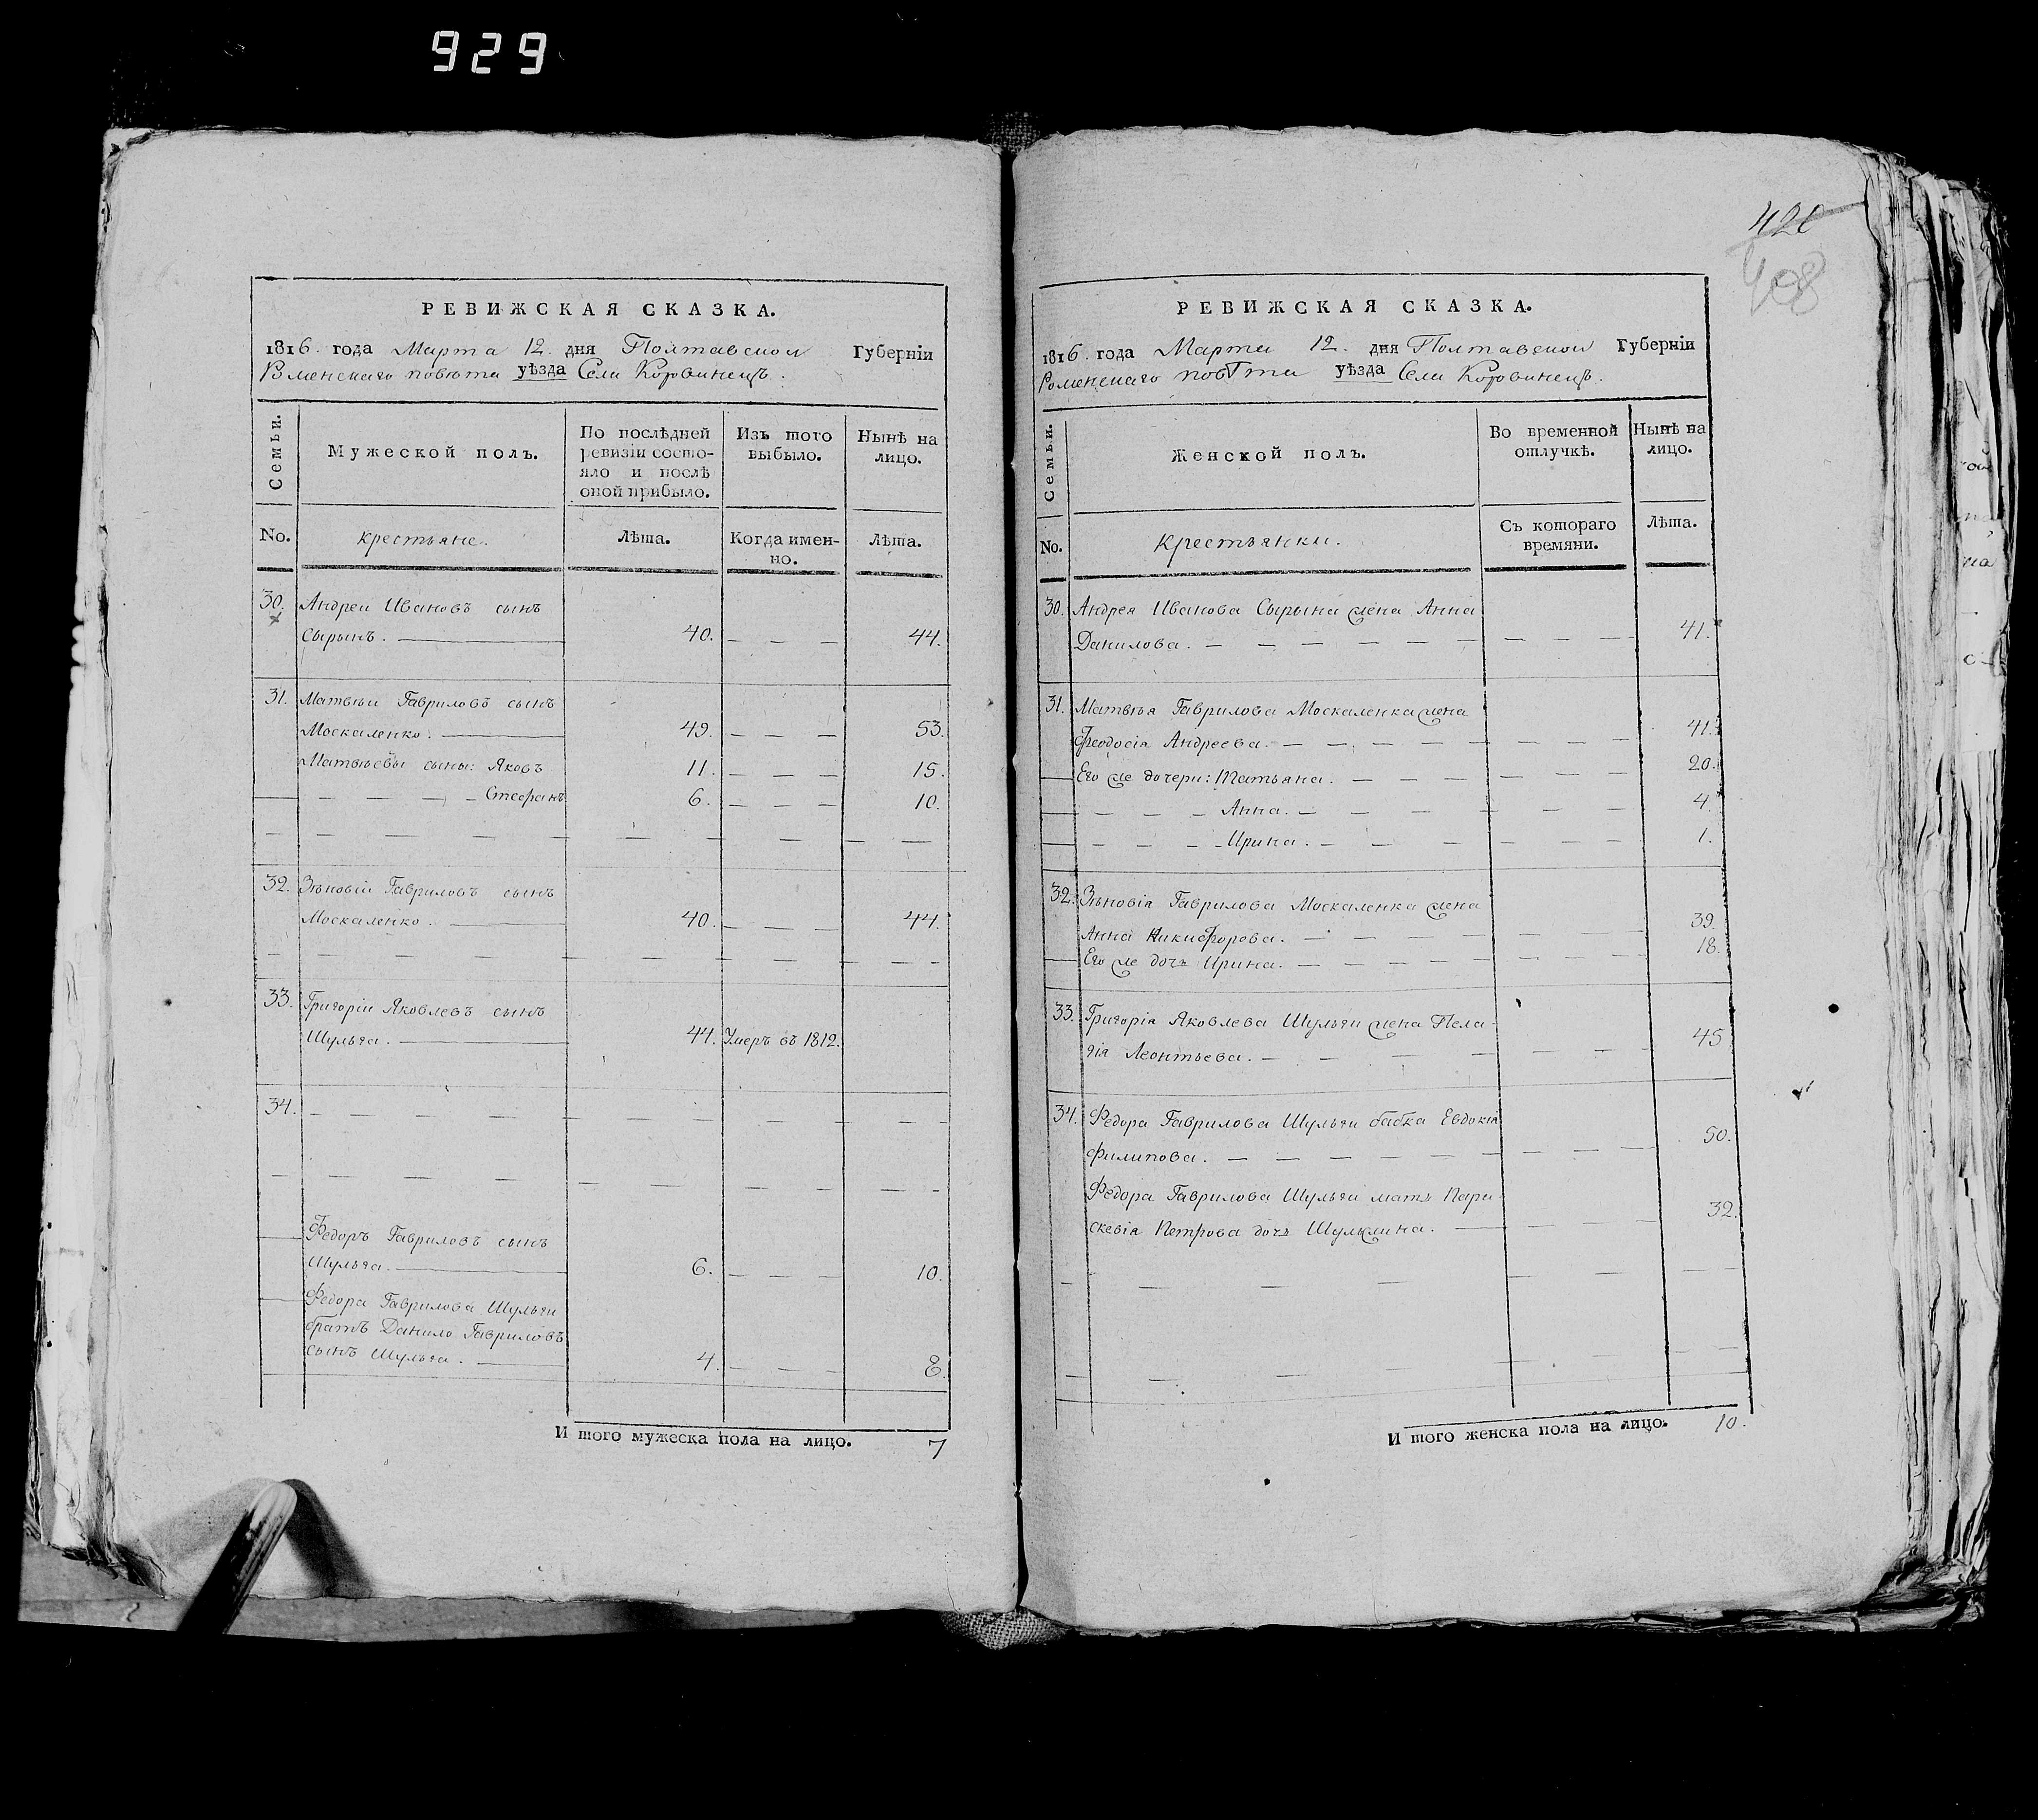 929
РЕВИЖСКАЯ СКАЗКА.
1816. года Марта 12. дня Полтавской Губерніи
Роменскаго повѣта уѣзда Села Коровинецъ.
Семьи.
Мужеской полъ.
По послѣдней
ревизіи состо-
яло и послѣ
оной прибыло.
Изъ того
выбыло.
Нынѣ на
лицо.
No.
крестьяне.
Лѣта.
Когда имен-
но.
Лѣта.
30. Андреи Ивановъ сынъ
Сырынъ. 40. 44.
31. Матвѣи Гавриловъ сынъ
Москаленко. 49. 53.
Матвѣевы сыны: Яковъ 11. 15.
Стефанъ 6. 10.
32. Зѣновіи Гавриловъ сынъ
Москаленко. 40. 44.
33. Григоріи Яковлевъ сынъ
Шульга. 44. Умеръ въ 1812.
34.
Федоръ Гавриловъ сынъ
Шульга. 6. 10.
Федора Гаврилова Шульги
братъ Данило Гавриловъ
сынъ Шульга. 4. 8.
И того мужеска пола на лицо. 7
420
408
РЕВИЖСКАЯ СКАЗКА.
1816. года Марта 12. дня Полтавской Губерніи
Роменскаго повѣта уѣзда Села Коровинецъ.
Семьи.
Женской полъ.
Во временной
отлучкѣ.
Нынѣ на
лицо.
No.
крестьянки.
Съ котораго
времяни.
Лѣта.
30. Андрея Иванова Сырына жена Анна
Данилова. 41.
31. Матвѣя Гаврилова Москаленка жена
Феодосія Андреева. 41.
Его же дочери: Татьяна. 20.
Анна. 4.
Ирина. 1.
32. Зѣновія Гаврилова Москаленка жена
Анна Никифорова. 39.
Его же дочь Ирина. 18.
33. Григорія Яковлева Шульги жена Пела-
гія Леонтьева. 45
34. Федора Гаврилова Шульги бабка Евдокія
Филипова. 50.
Федора Гаврилова Шульги мать Пара-
скевія Петрова дочь Шульжина. 32.
И того женска пола на лицо. 10.